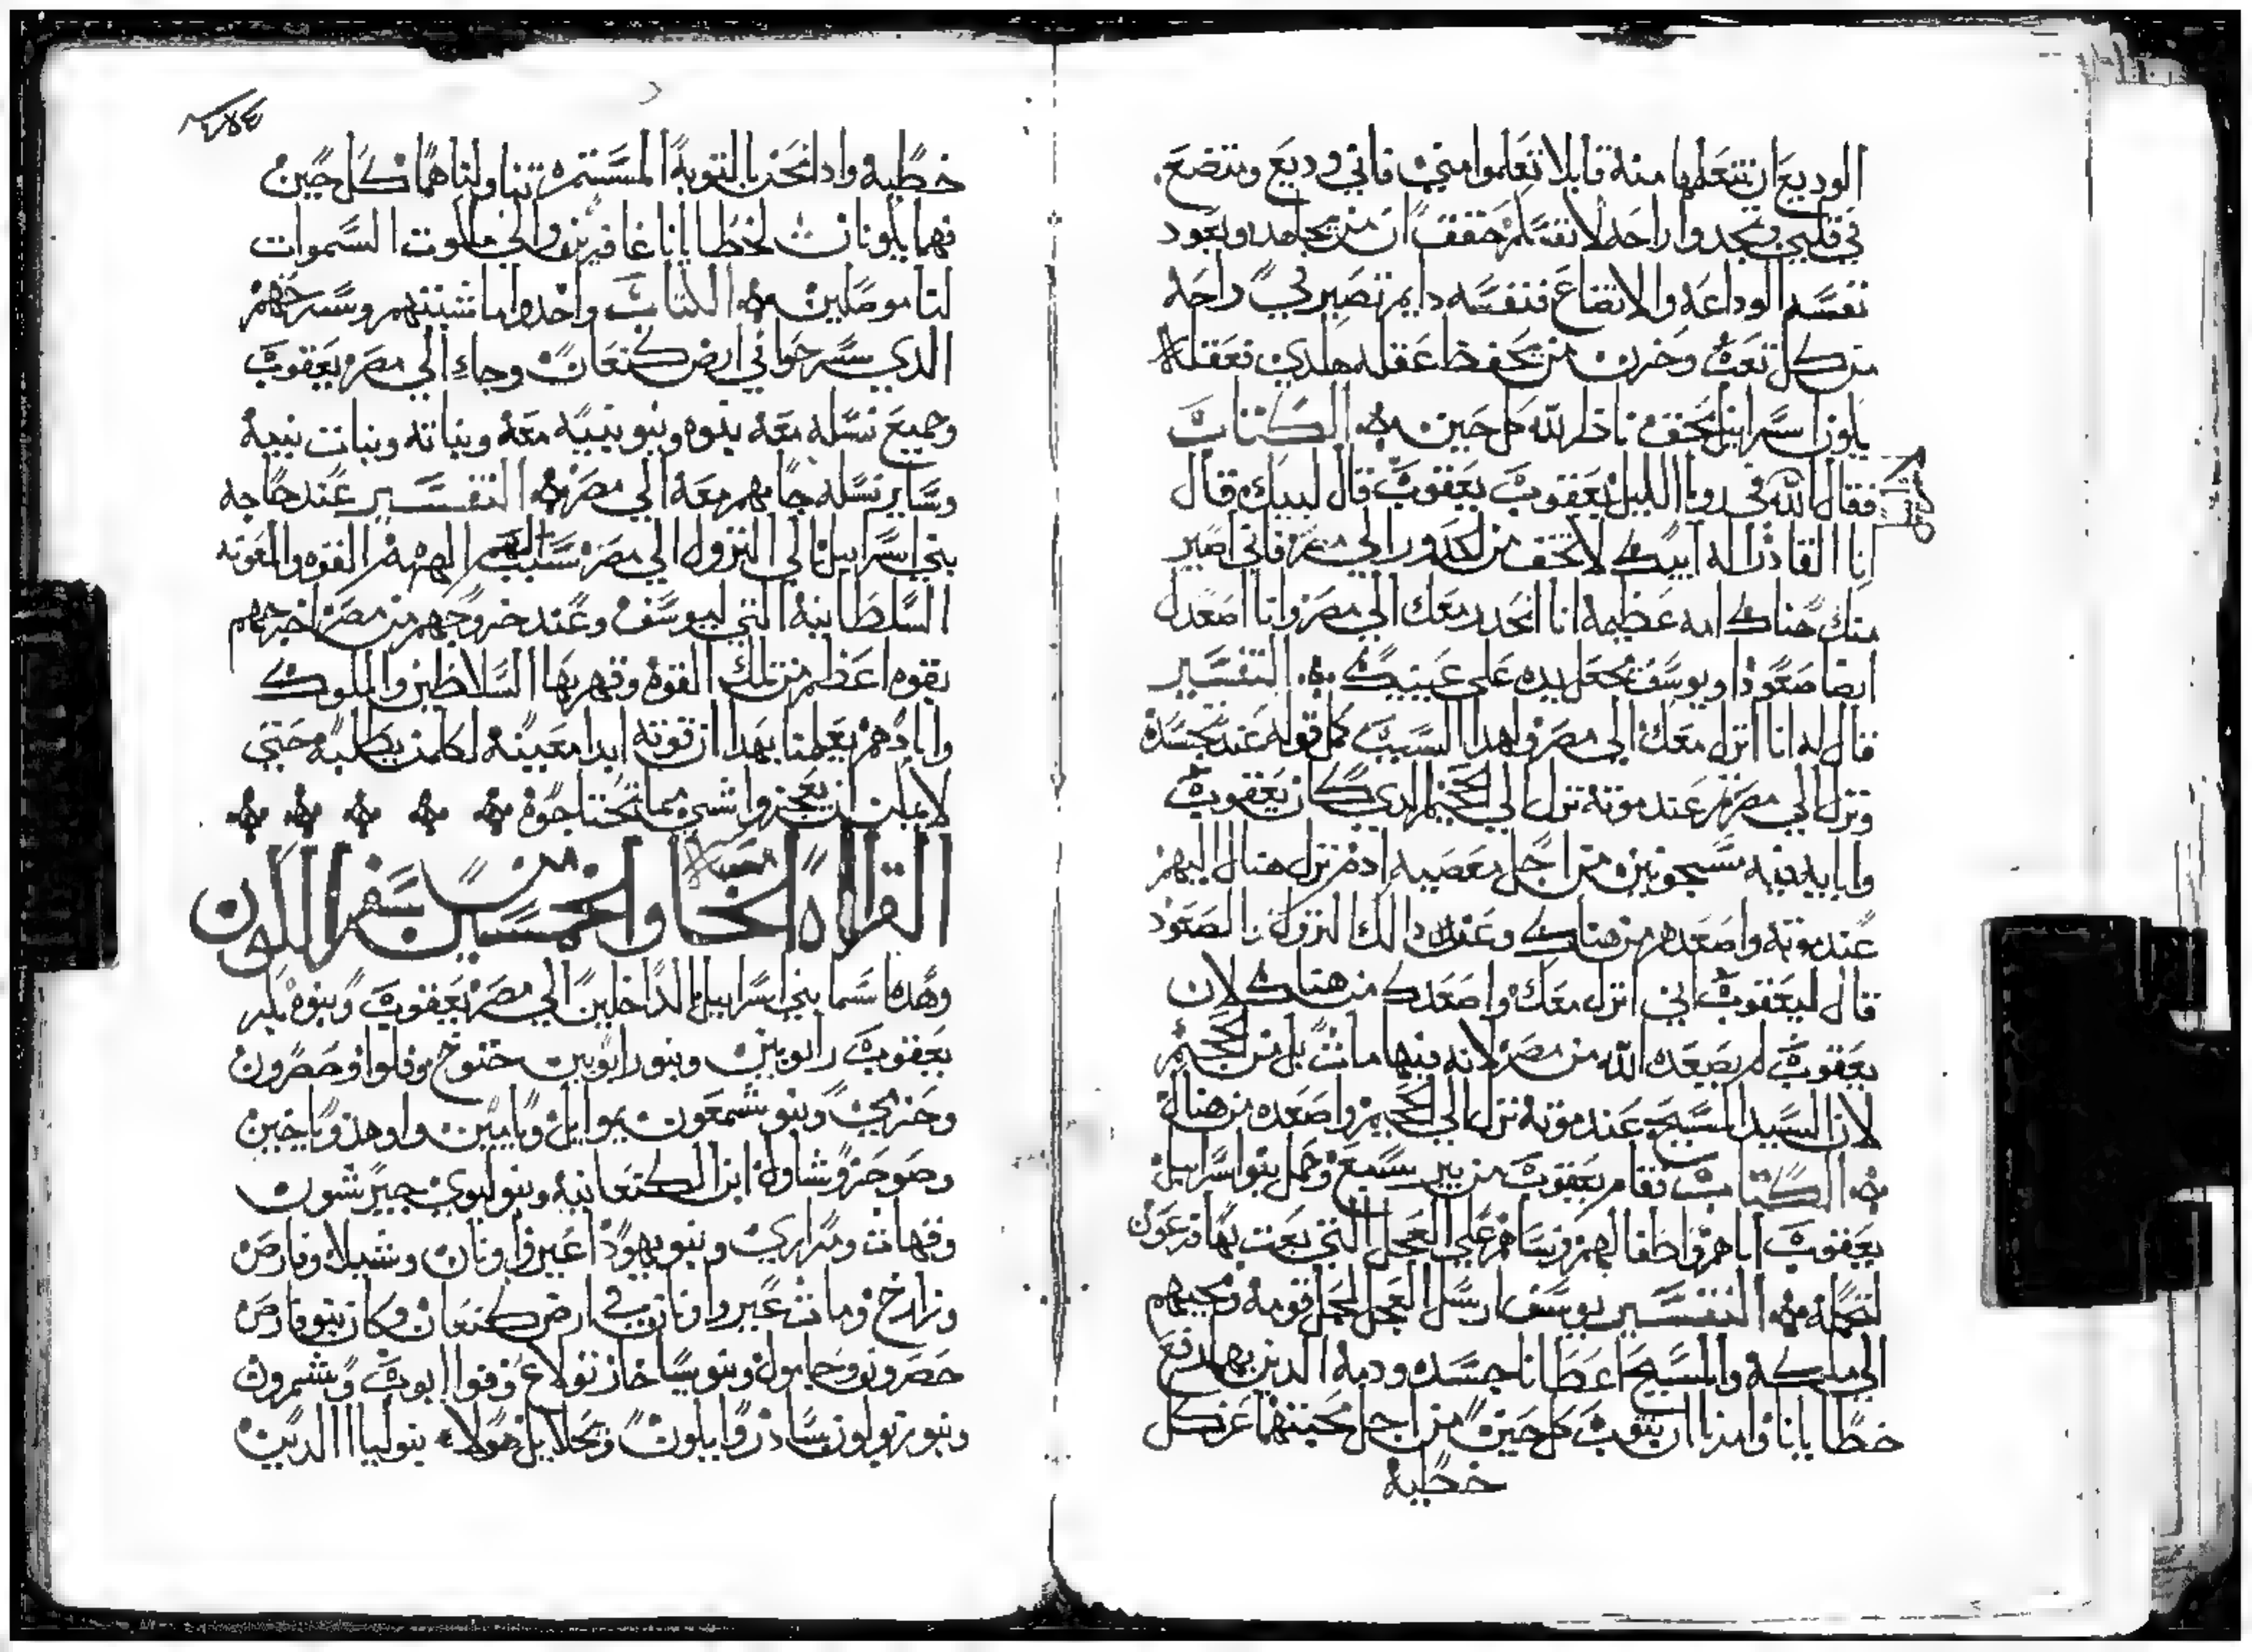 الوديع ان نتعلمها منه قايلا تعلموا مني فاني وديع ومتضع
في قلبي وتجدوا راحه لانفسكم حقق ان من يجاهد ويعود
نفسه الوداعه والاتضاع فنفسه دايم تصير في راحه
من كل تعب وحزن من يحفظ عقله هكدي فعقله
يكون اسراييل بحق ناظر الله كل حين ܀ الكتاب
فقال الله في رويا الليل يعقوب يعقوب قال لبيك قال
انا القادر اله ابيك لا تخف من الحدور الي مصر فاني اصير
منك هناك امه عظيمه انا انحدر معك الي مصر وانا اصعدك
ايضا صعودا ويوسف يجعل يده علي عينيك ܀ التفسير
قال له انا انزل معك الي مصر ولهدا السبب كمل قوله عند تجسده
ونزل الي مصر ثم عند موته نزل الي الجحيم الدي كان يعقوب
وابايه فيه مسجونين من اجل معصيه ادم نزل هناك اليهم
عند موته واصعدهم من هناك وعن دلك النزول والصعود
قال ليعقوب اني انزل معك واصعدك من هناك لان
يعقوب لم يصعده الله من مصر لانه فيها مات بل من الجحيم
لان السيد المسيح عند موته نزل الي الجحيم واصعده من هناك
܀ الكتاب فقام يعقوب من بير سبع وحمل بنو اسراييل
يعقوب اباهم واطفالهم ونساهم علي العجل التي بعت بها فرعون
لتحمله ܀ التفسير يوسف ارسل العجل لحمل قومه ومجيهم
الي ملكه والمسيح اعطانا جسده ودمه الدين بهما دفع
خطايانا وامرنا ان نتوب كل حين من اجل محبتنا عن كل
خطيه
خطيه وادا نحن بالتوبه المستمره تناولناهما كل حين
فهما يكونان لخطايانا غافرين والي ملكوت السموات
لنا موصلين ܀ الكتاب واخدوا ماشيتهم وسرحهم
الدي سرحوا في ارض كنعان وجاء الي مصر يعقوب
وجميع نسله معه بنوه وبنو بنيه معه وبناته وبنات بنيه
وساير نسله جا بهم معه الي مصر ܀ التفسير عند حاجه
بني اسراييل الي النزول الي مصر سبب لهم الههم القوه والمعونه
السلطانيه التي ليوسف وعند خروجهم من مصر اخرجهم
بقوه اعظم من تلك القوه وقهر بها السلاطين والملوك
وابادهم يعلمنا بهدا ان قوته ابدا معينه لكلمن يطلبه حتي
لا يمكن ان يعجزوا شي مما تحتاجوه ܀ ܀ ܀ ܀ ܀
القراه الحاديه والخمسين من سفر التكوين
وهده اسما بني اسراييل الداخلين الي مصر يعقوب وبنوه بكر
يعقوب رابوبين وبنو رابوبين حنوخ وفلوا وحصرون
وخرمي وبنو شمعون يموايل ويامين واوهد وياخين
وصوحر وشاول ابن الكنعانيه وبنو ليوي جيرشون
وقهات ومراري وبنو يهودا عير واونان وشيلا وفارص
وزارح ومات عير واونان في ارض كنعان وكان بنو فارص
حصرون وحامول وبنو يساخار تولاع وفوا ايوب وشمرون
وبنو زبولون سادر وايلون ويحلاييل هولاء بنو ليا الدين